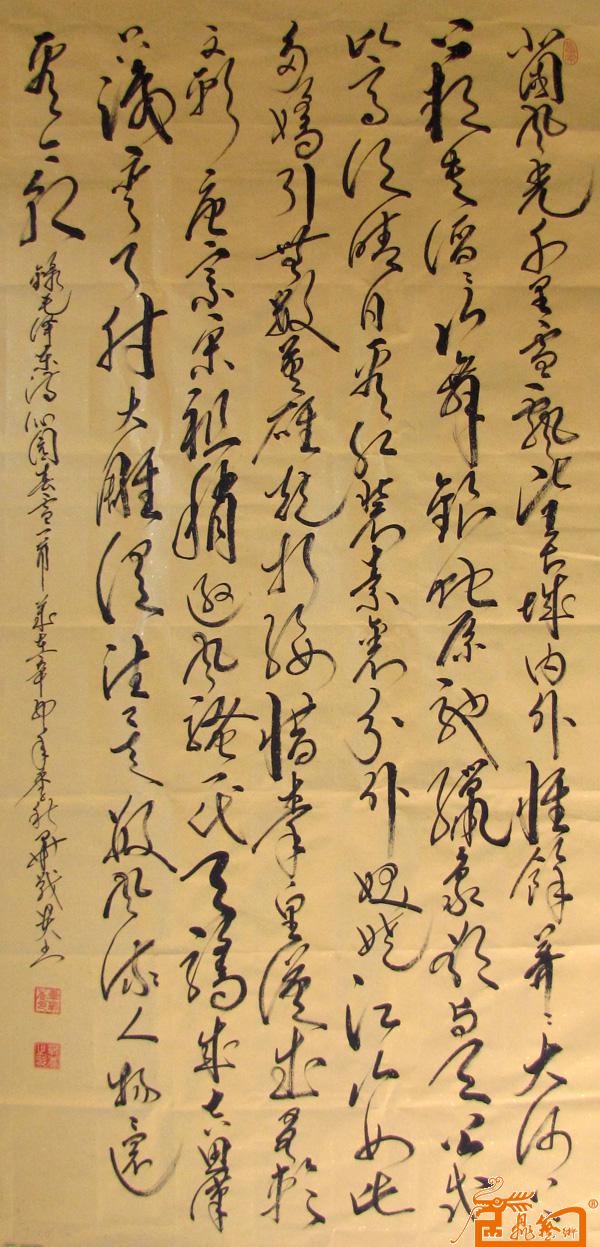 北國風光千里雪飄望長城内外惟餘莽々大河上
下頓失滔々山舞銀蛇原馳蠟象欲與天公試
比高須晴日看紅裝素裹分外妖嬈江山如此
多嬌引無數英雄競折腰惜秦皇漢武略輸
文彩唐宗宋祖稍遜風騷一代天驕成吉思汗
只識彎弓射大雕俱往矣數風流人物還
看今朝
錄毛澤東詞沁園春雪一首 歲在辛卯年